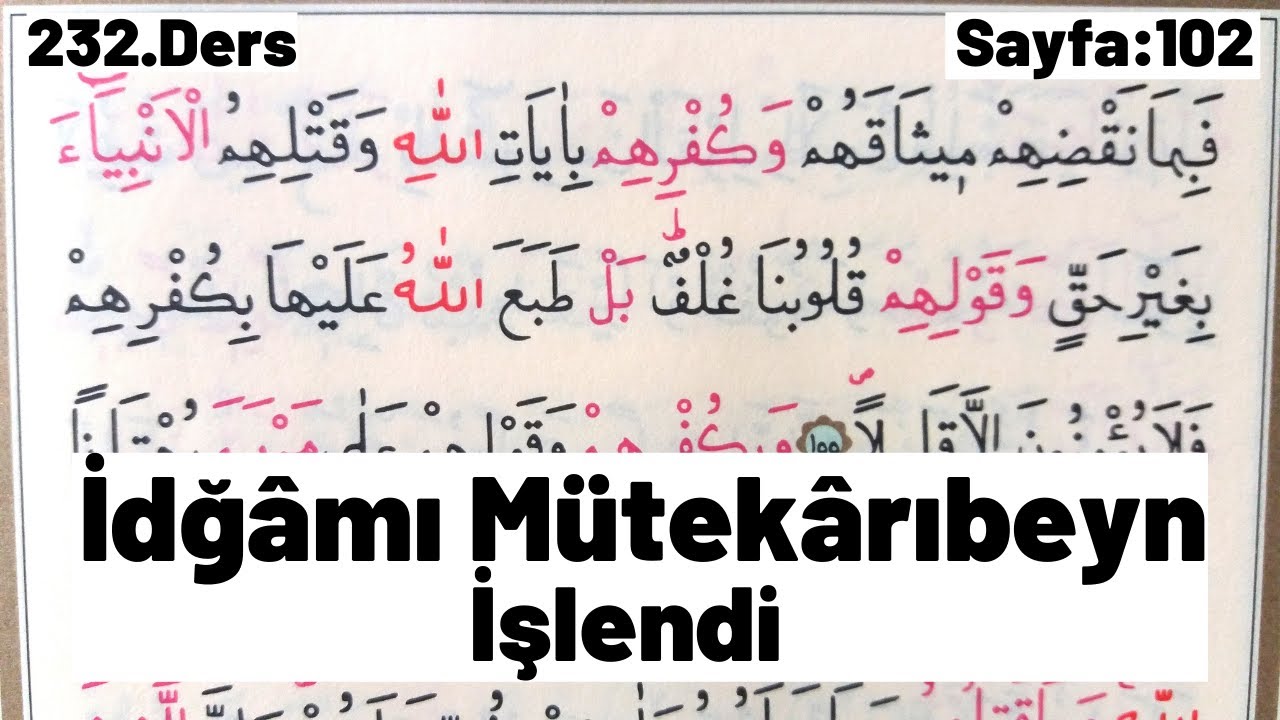 232.Ders
Sayfa:102
فَبِمَا نَقْضِهِمْ مٖيثَاقَهُمْ وَكُفْرِهِمْ بِاٰيَاتِ اللّٰهِ وَقَتْلِهِمُ الْاَنْبِيَٓاءَ
بِغَيْرِ حَقٍّ وَقَوْلِهِمْ قُلُوبُنَا غُلْفٌؕ بَلْ طَبَعَ اللّٰهُ عَلَيْهَا بِكُفْرِهِمْ
فَلَا يُؤْمِنُونَ اِلَّا قَلٖيلًا ١٥٥ وَبِكُفْرِهِمْ وَقَوْلِهِمْ عَلٰى مَرْيَمَ بُهْتَانًا
İdğâmı Mütekârıbeyn
İşlendi